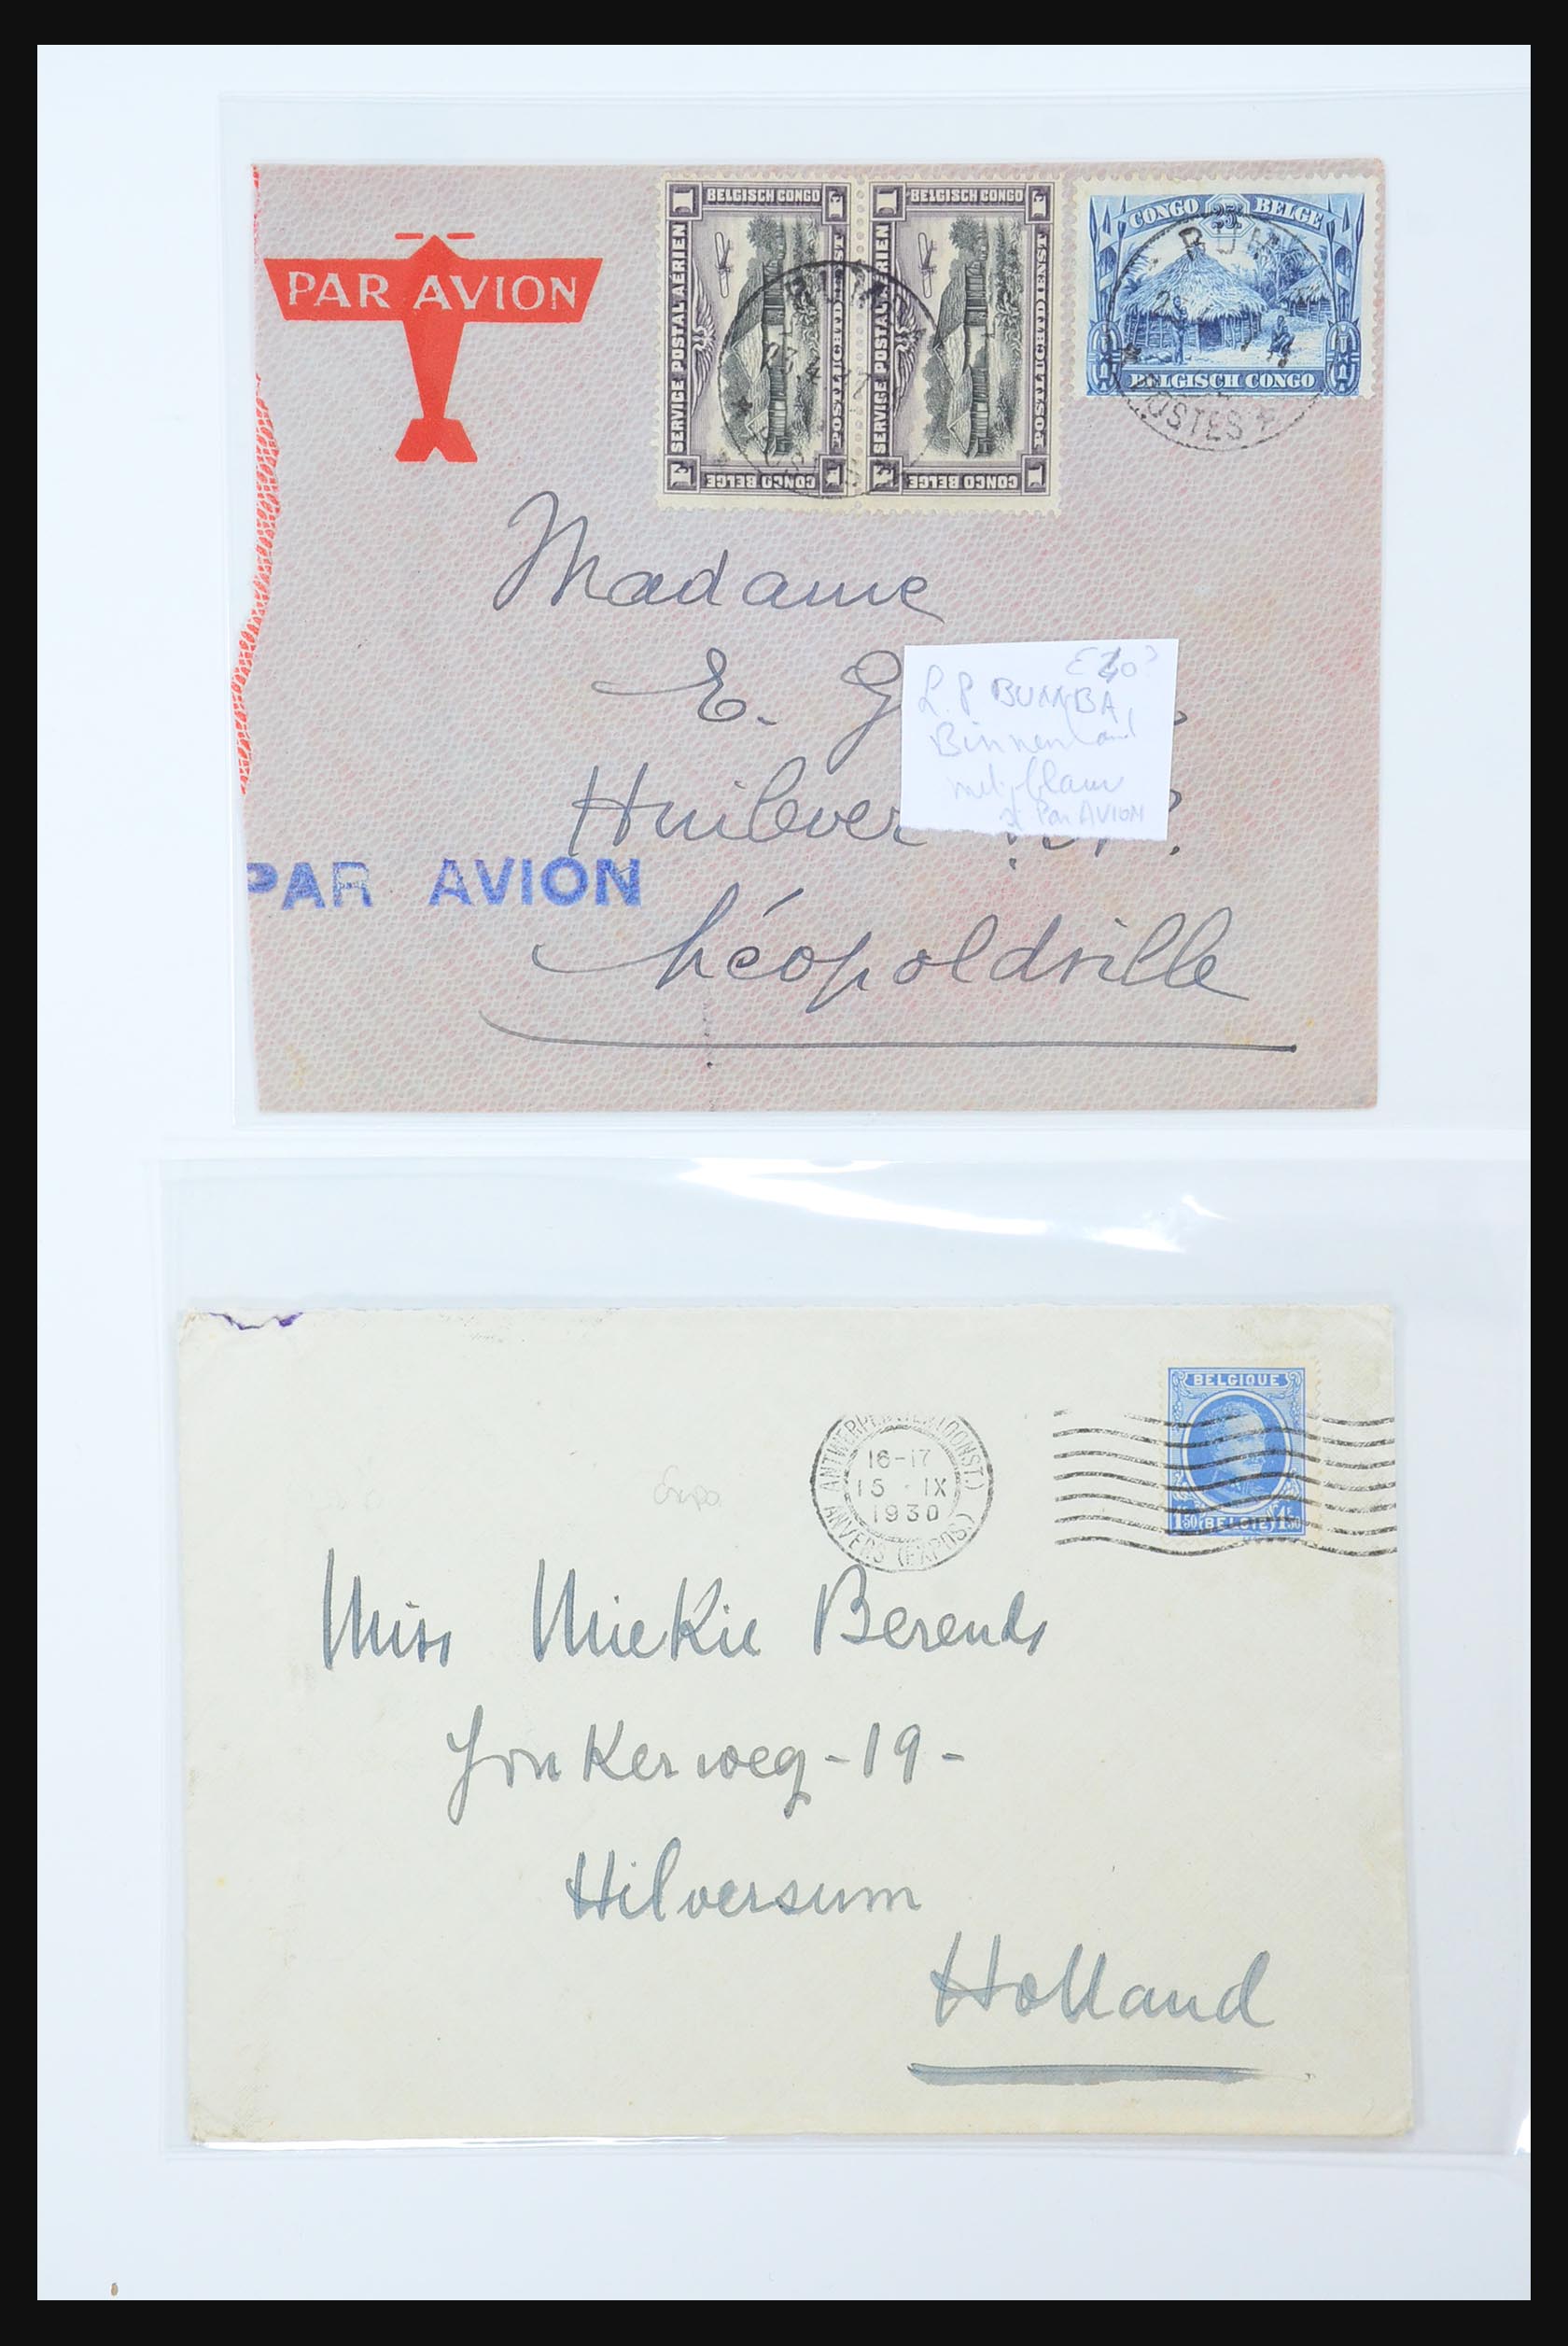 BELGISCH CONGO
SERVICE POSTAL AÉRIEN
POSTLUCHTDIENST
CONGO BELGE
1 F
BELGISCH CONGO
SERVICE POSTAL AÉRIEN
POSTLUCHTDIENST
CONGO BELGE
1 F
CONGO BELGE
BELGISCH CONGO
POSTES
PAR AVION
Madame
E. G
Léopoldville
PAR AVION
L.P BUMBA
Binnenland
met blauw
st Par AVION
BELGIQUE
1F50 (BELGIË) 1F50
ANTWERPEN (TENTOONST.)
16-17
15 IX
1930
ANVERS (EXPOS.)
Miss Miekie Berends
Jonkerweg -19-
Hilversum
Holland